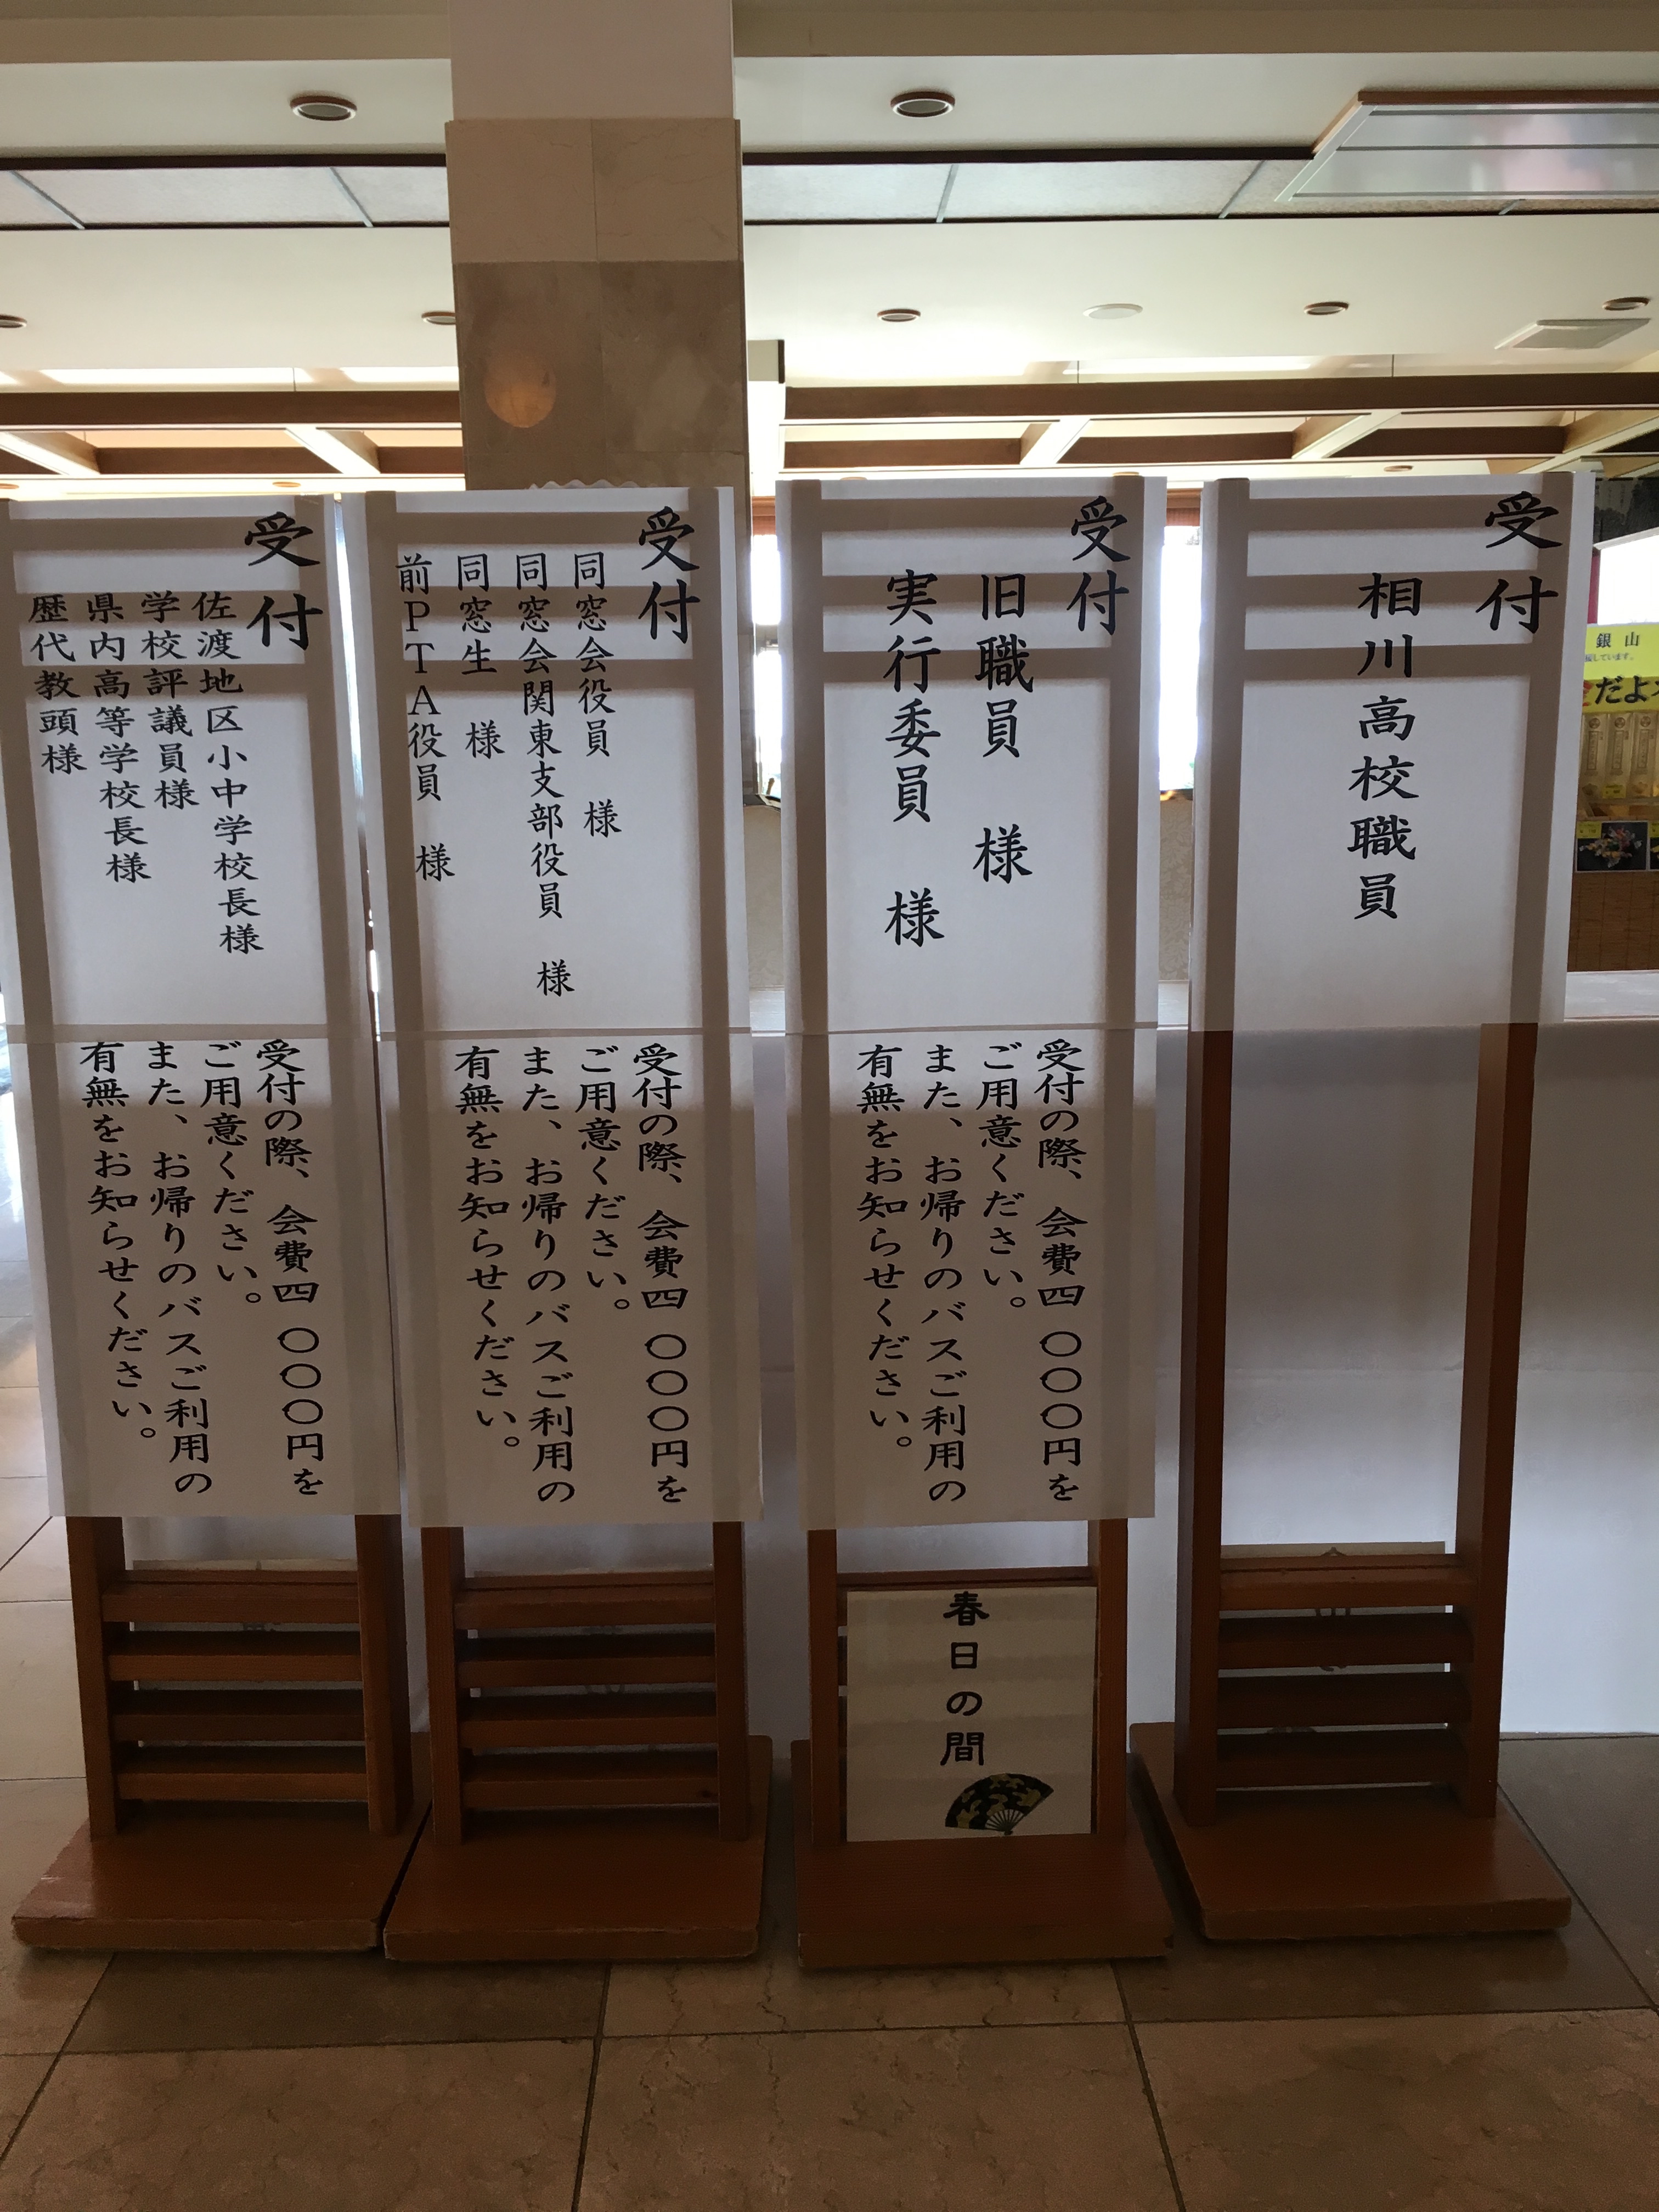 受付
相川高校職員
受付
旧職員　様
実行委員　様
受付の際、会費四〇〇〇円を
ご用意ください。
また、お帰りのバスご利用の
有無をお知らせください。
春日の間
受付
同窓会役員　様
同窓会関東支部役員　様
同窓生　様
前PTA役員　様
受付の際、会費四〇〇〇円を
ご用意ください。
また、お帰りのバスご利用の
有無をお知らせください。
受付
佐渡地区小中学校長様
学校評議員様
県内高等学校長様
歴代教頭様
受付の際、会費四〇〇〇円を
ご用意ください。
また、お帰りのバスご利用の
有無をお知らせください。
銀山
しています。
だよ